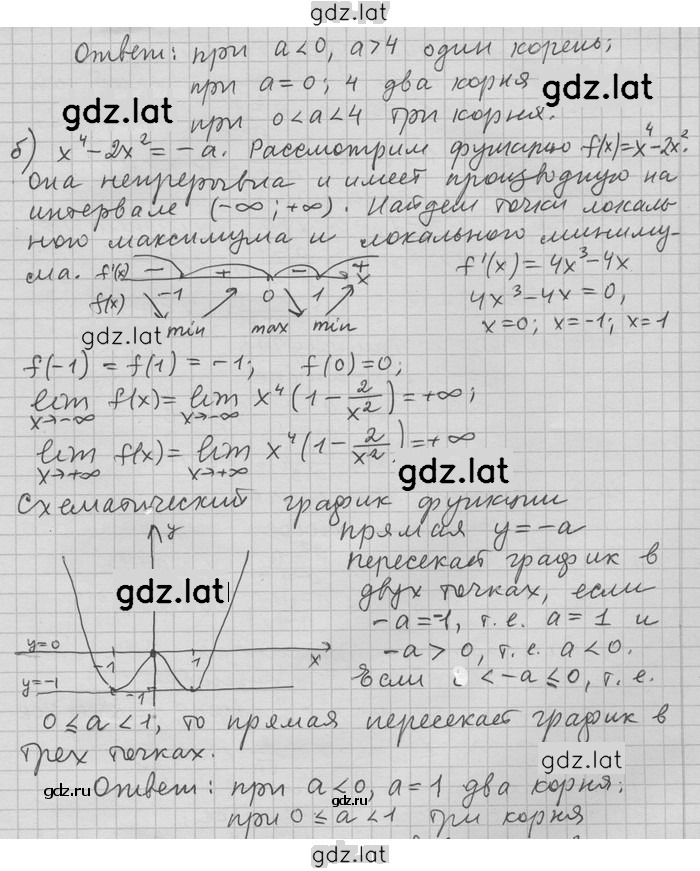 gdz.lat
Ответ: при a<0, a>4 один корень;
при a=0; 4 два корня
gdz.lat
gdz.lat
при 0<a<4 три корня.
б) x⁴-2x²=-a. Рассмотрим функцию f(x)=x⁴-2x².
Она непрерывна и имеет производную на
интервале (-∞;+∞). Найдем точки локаль-
ного максимума и локального миниму-
ма. f'(x) - + - + x
f(x) -1 0 1
min max min
gdz.lat
f'(x)=4x³-4x
4x³-4x=0,
x=0; x=-1; x=1
f(-1)=f(1)=-1; f(0)=0;
lim x→-∞ f(x)=lim x→-∞ x⁴(1-2/x²)=+∞;
lim x→+∞ f(x)=lim x→+∞ x⁴(1-2/x²)=+∞
gdz.lat
Схематический график функции
y
gdz.lat
y=0
-1 1 x
y=-1
-1
прямая y=-a
пересекает график в
двух точках, если
-a=-1, т.е. a=1 и
-a>0, т.е. a<0.
Если <-a≤0, т.е.
0≤a<1, то прямая пересекает график в
трех точках.
gdz.lat
gdz.ru
Ответ: при a<0, a=1 два корня;
gdz.ru
при 0≤a<1 три корня
gdz.lat